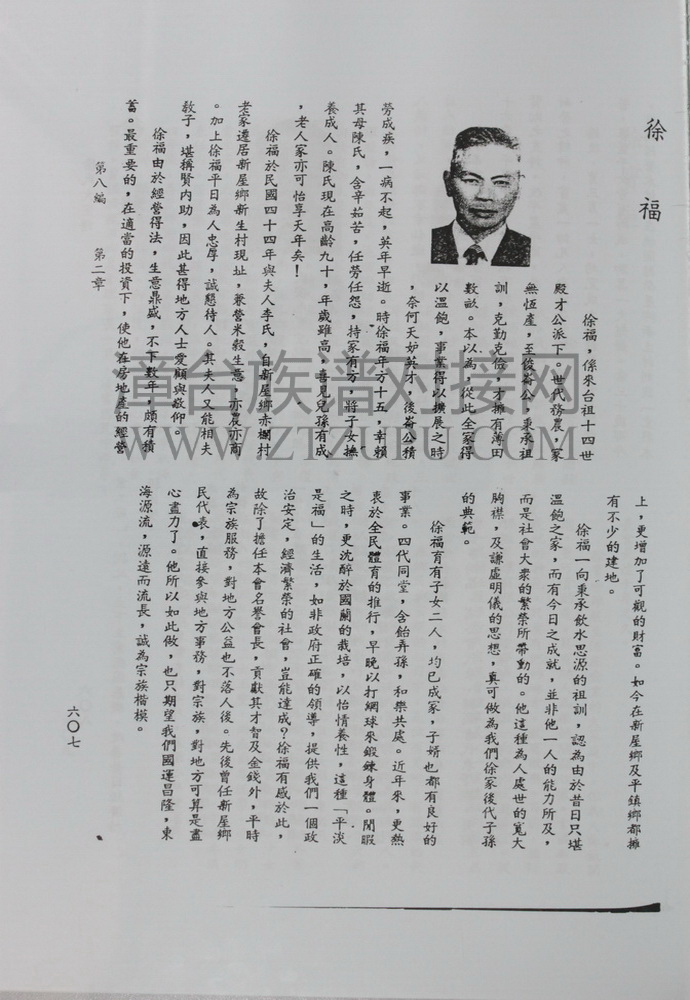 徐福
徐福，係來台祖十四世
殿才公派下。世代務農，家
無恆產，至俊崙公，秉承祖
訓，克勤克儉，才擁有薄田
數畝。本以為，從此全家得
以溫飽，事業得以擴展之時
，奈何天妒英才，後崙公積
勞成疾，一病不起，英年早逝。時徐福年方十五，幸賴
其母陳氏，含辛茹苦，任勞任怨，持家有方，將子女撫
養成人。陳氏現在高齡九十，年歲雖高，喜見兒孫有成
，老人家亦可怡享天年矣！
徐福於民國四十四年與夫人李氏，自新屋鄉赤欄村
老家遷居新屋鄉新生村現址，兼營米穀生意，亦農亦商
。加上徐福平日為人忠厚，誠懇待人。其夫人又能相夫
教子，堪稱賢內助，因此甚得地方人士愛顧與敬仰。
徐福由於經營得法，生意鼎盛，不下數年，頗有積
蓄。最重要的，在適當的投資下，使他在房地產的經營
上，更增加了可觀的財富。如今在新屋鄉及平鎮鄉都擁
有不少的建地。
徐福一向秉承飲水思源的祖訓，認為由於昔日只堪
溫飽之家，而有今日之成就，並非他一人的能力所及，
而是社會大眾的繁榮所帶動的。他這種為人處世的寬大
胸襟，及謙虛明儀的思想，真可做為我們徐家後代子孫
的典範。
徐福育有子女二人，均已成家，子婿也都有良好的
事業。四代同堂，含飴弄孫，和樂共處。近年來，更熱
衷於全民體育的推行，早晚以打網球來鍛鍊身體。閒暇
之時，更沈醉於國蘭的栽培，以怡情養性，這種「平淡
是福」的生活，如非政府正確的領導，提供我們一個政
治安定，經濟繁榮的社會，豈能達成？徐福有感於此，
故除了擔任本會名譽會長，貢獻其才智及金錢外，平時
為宗族服務，對地方公益也不落人後。先後曾任新屋鄉
民代表，直接參與地方事務，對宗族，對地方可算是盡
心盡力了。他所以如此做，也只期望我們國運昌隆，東
海源流，源遠而流長，誠為宗族楷模。
第八編 第二章
六〇七
童台族谱对接网
WWW.ZTZUPU.COM